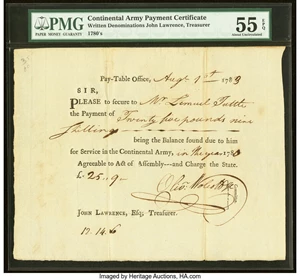 PMG
PAPER MONEY GUARANTY
Continental Army Payment Certificate
Written Denominations John Lawrence, Treasurer
1780's
55 EPQ
About Uncirculated
Pay-Table Office, Augt 1st 1783
SIR,
PLEASE to secure to Mr Lemuel Tuttle
the Payment of Twenty five pounds nine
Shillings
being the Balance found due to him
for Service in the Continental Army, in the year 1780
Agreeable to Act of Assembly—and Charge the State.
£ 25..9
JOHN LAWRENCE, Esq; Treasurer.
Images by Heritage Auctions, HA.com